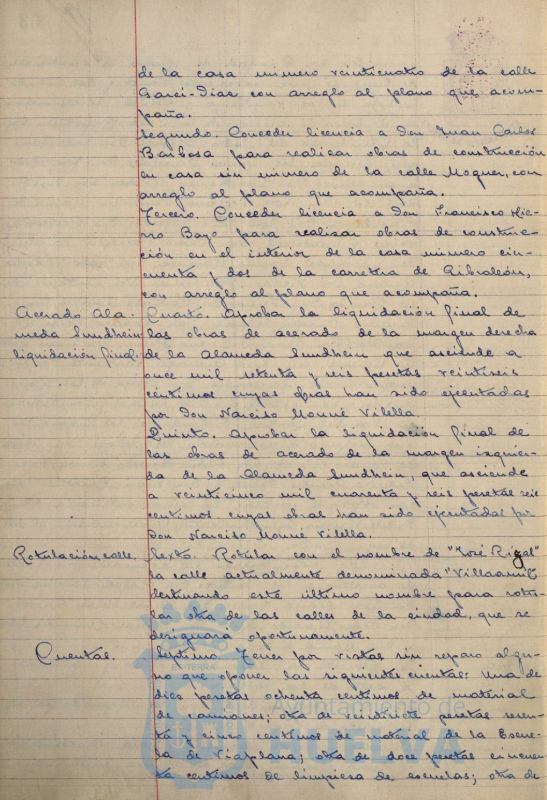 de la casa número veinticuatro de la calle
Garci-Dias con arreglo al plano que acom-
paña.
Segundo. Conceder licencia a Don Juan Carlos
Barbosa para realizar obras de construcción
en casa sin número de la calle Moguer, con
arreglo al plano que acompaña.
Tercero. Conceder licencia a Don Francisco Hie-
rro Bayo para realizar obras de construc-
ción en el interior de la casa número cin-
cuenta y dos de la carretera de Gibraleón,
con arreglo al plano que acompaña.
Acerado Ala-
meda Sundhein
liquidación final.
Cuarto. Aprobar la liquidación final de
las obras de acerado de la margen derecha
de la Alameda Sundhein que asciende a
once mil setenta y seis pesetas veintiseis
centimos cuyas obras han sido ejecutadas
por Don Narciso Monné Vilella.
Quinto. Aprobar la liquidación final de
las obras de acerado de la margen izquier-
da de la Alameda Sundhein, que asciende
a veinticinco mil cuarenta y seis pesetas seis
centimos cuyas obras han sido ejecutadas por
Don Narciso Monné Vilella.
Rotulación calle.
Sexto. Rotular con el nombre de "José Rizal"
la calle actualmente denominada "Villaamil"
destinando este último nombre para rotu-
lar otra de las calles de la ciudad, que se
designará oportunamente.
Cuentas.
Septimo. Tener por vistas sin reparo algu-
no que oponer las siguientes cuentas: Una de
diez pesetas ochenta centimos de material
de camiones; otra de veintisiete pesetas seten-
ta y cinco centimos de material de la Escue-
la de Viaplana; otra de doce pesetas cincuen-
ta centimos de limpiesa de escuelas; otra de
TERRA
Ayuntamiento de
HUELVA